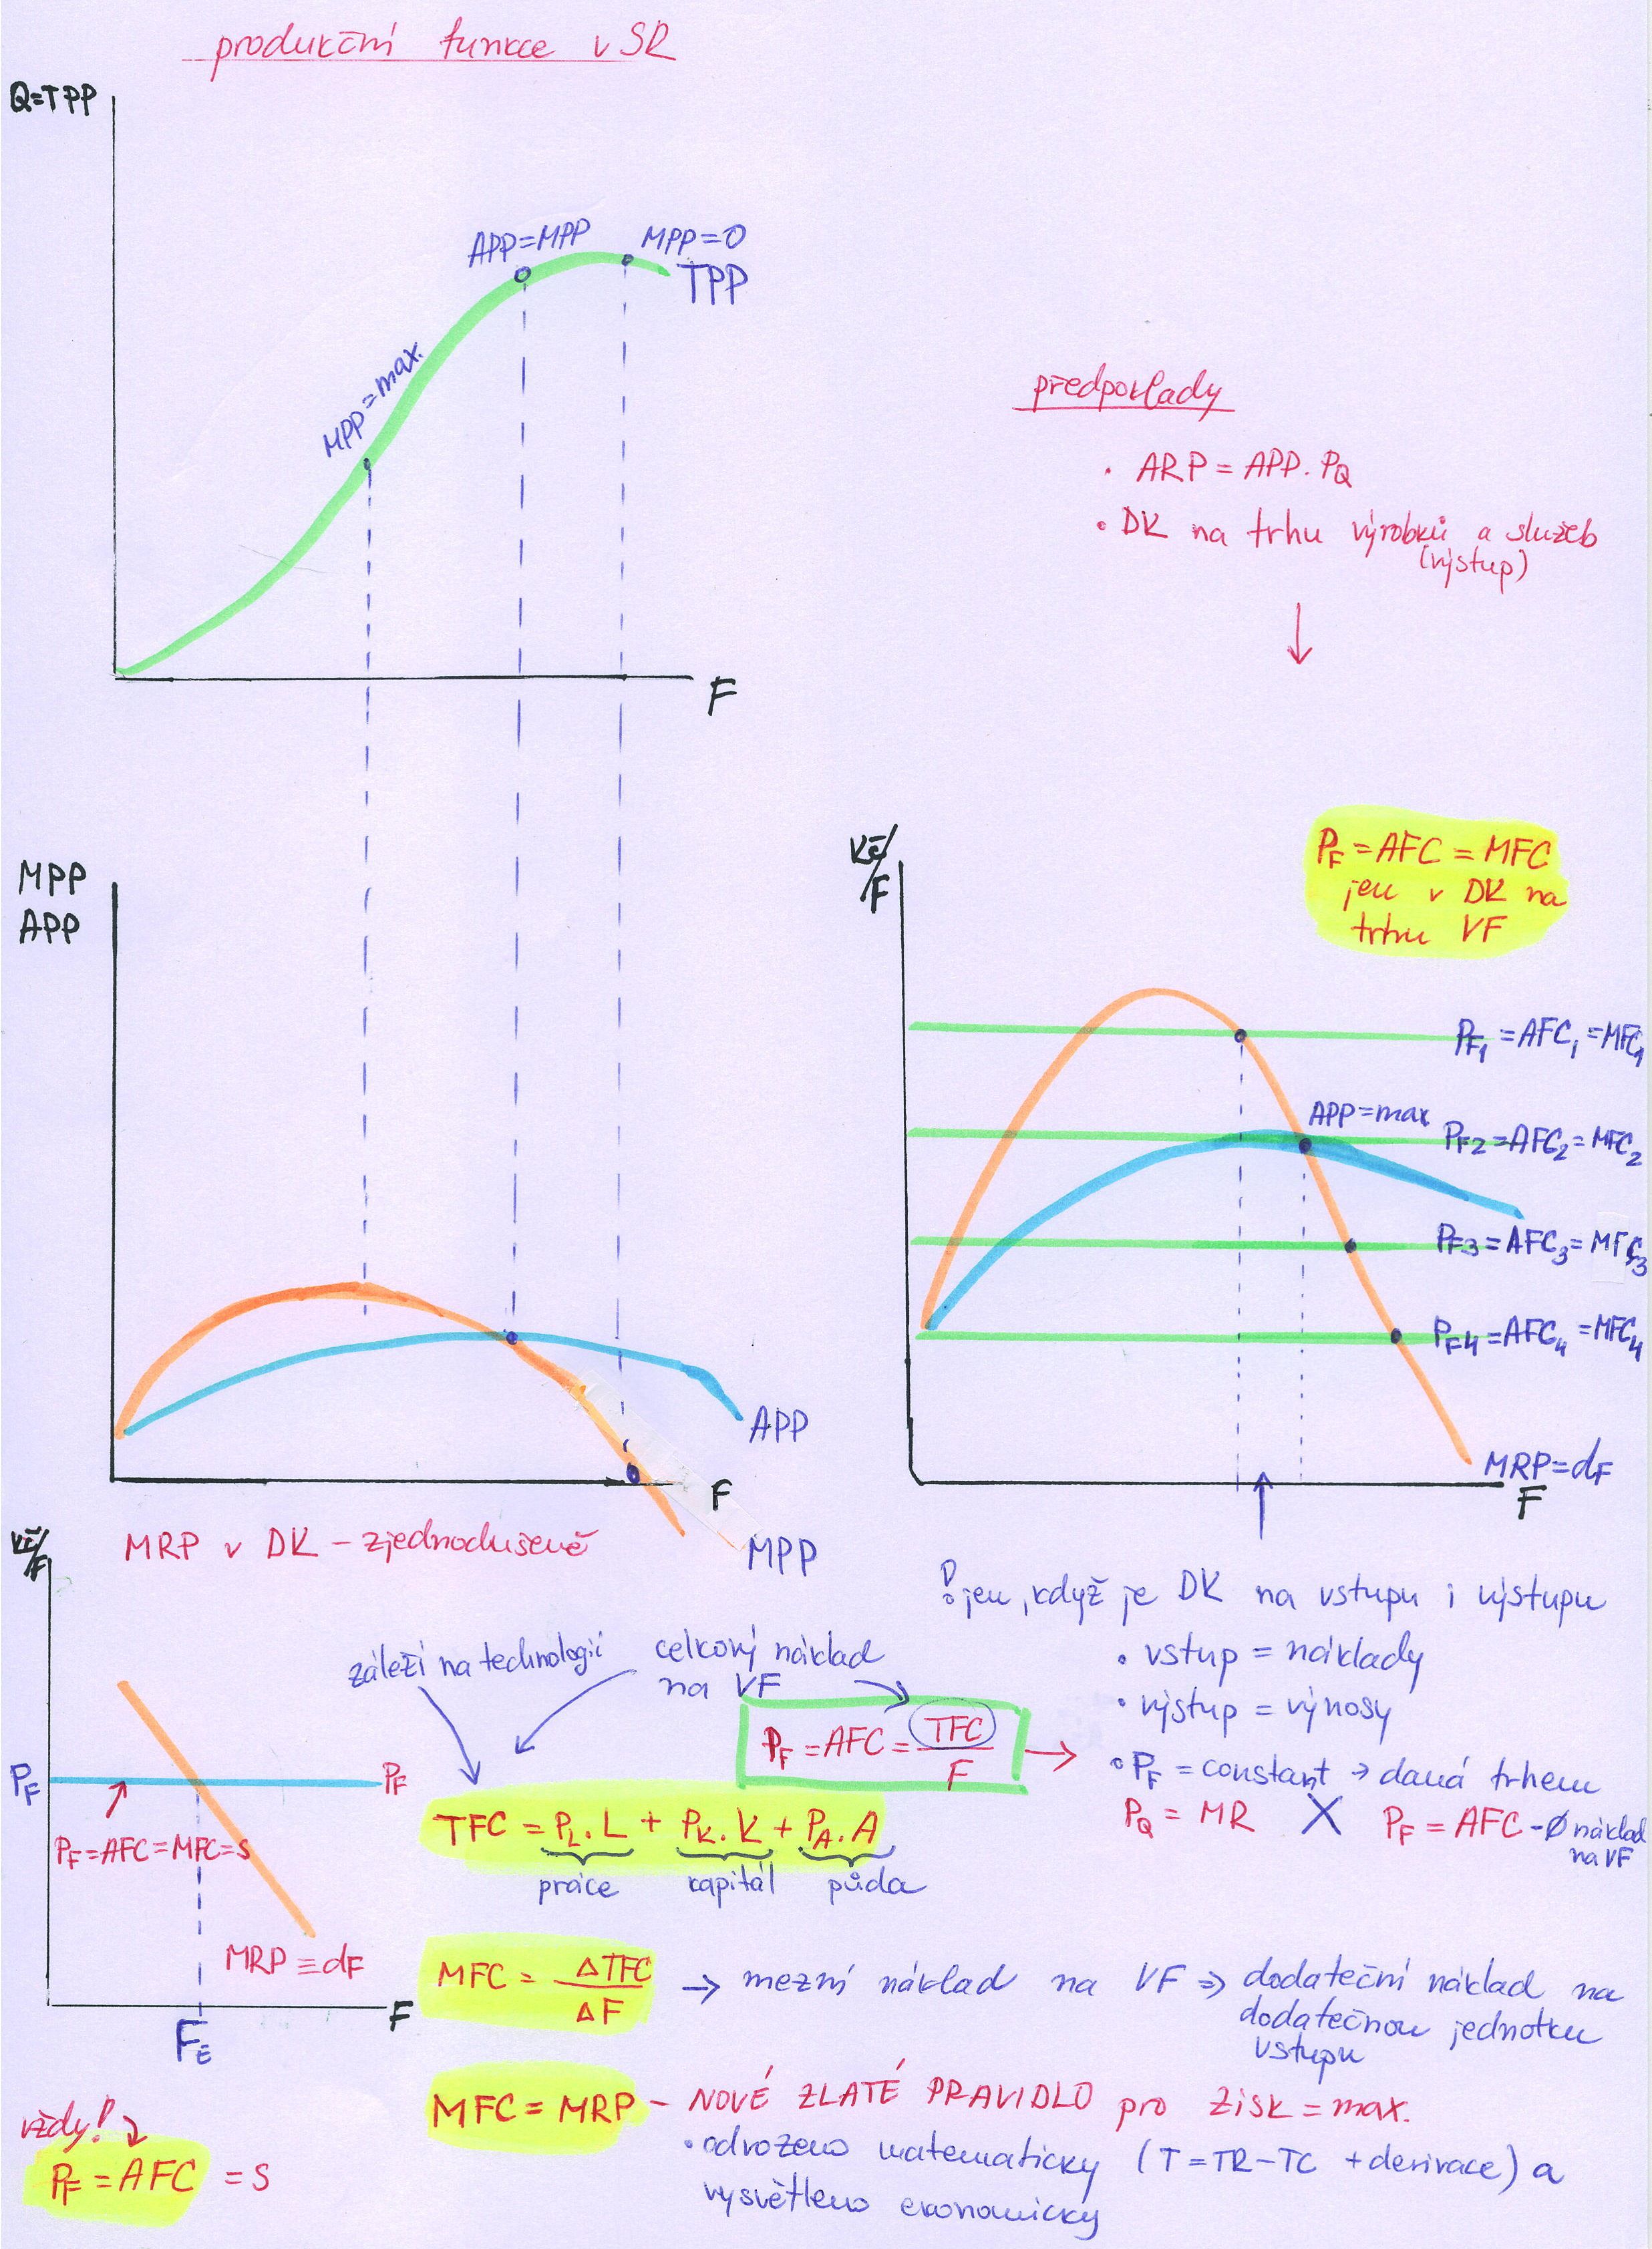 produkční funkce v SR
Q=TPP
APP=MPP
MPP=0
TPP
MPP=max.
F
předpoklady
• ARP = APP. PQ
• DK na trhu výrobků a služeb
(výstup)
MPP
APP
APP
F
MPP
Kč/F
PF = AFC = MFC
jen v DK na
trhu VF
PF1 = AFC1 = MFC1
APP=max
PF2 = AFC2 = MFC2
PF3 = AFC3 = MFC3
PF4 = AFC4 = MFC4
MRP=dF
F
MRP v DK - zjednodušeně
Kč/F
PF
PF
PF=AFC=MFC=S
MRP ≡ dF
F
FE
! jen, když je DK na vstupu i výstupu
• vstup = náklady
• výstup = výnosy
• PF = constant → daná trhem
PQ = MR X PF = AFC - Ø náklad
na VF
záleží na technologii
celkový náklad
na VF
PF = AFC = TFC/F →
TFC = PL. L + PK. K + PA. A
práce kapitál půda
MFC = ΔTFC/ΔF → mezní náklad na VF ⇒ dodateční náklad na
dodatečnou jednotku
vstupu
MFC = MRP - NOVÉ ZLATÉ PRAVIDLO pro zisk = max.
• odvozeno matematicky (T = TR-TC + derivace) a
vysvětleno ekonomicky
vždy!
PF = AFC = S